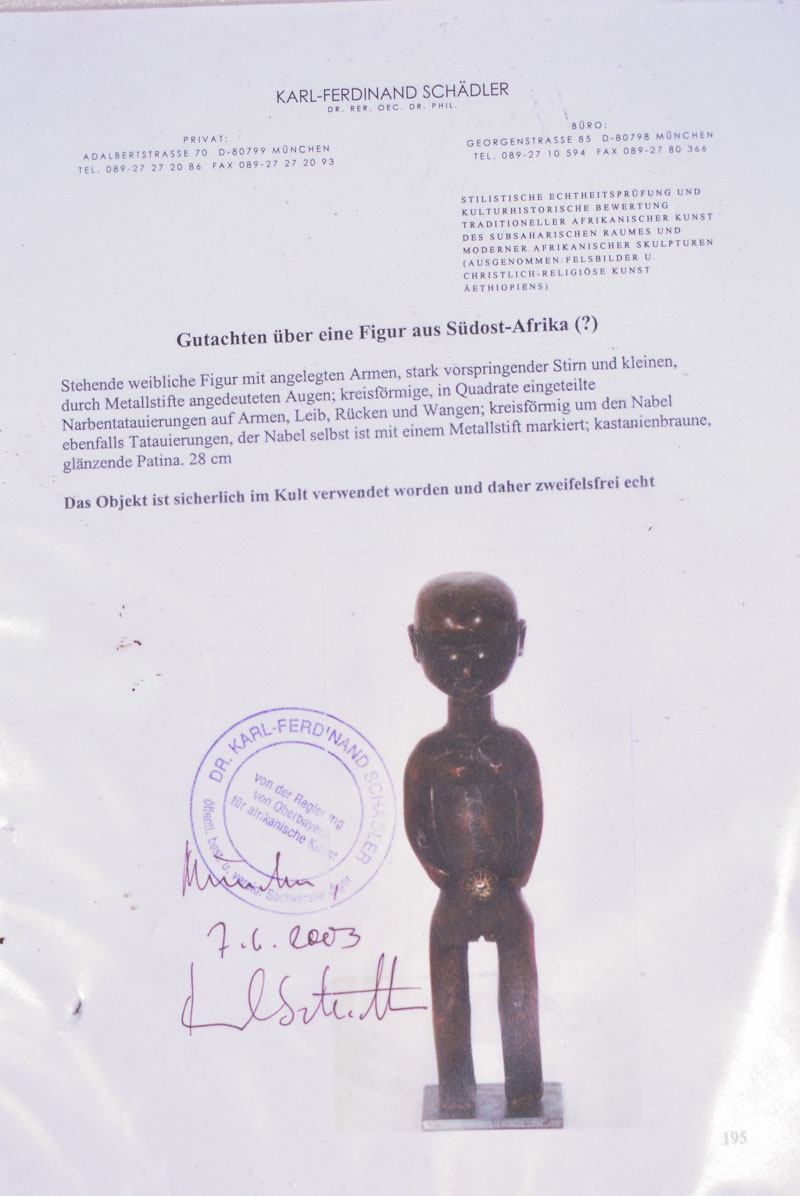 KARL-FERDINAND SCHÄDLER
DR. RER. OEC. DR. PHIL.
PRIVAT:
ADALBERTSTRASSE 70 D-80799 MÜNCHEN
TEL. 089-27 27 20 86 FAX 089-27 27 20 93
BÜRO:
GEORGENSTRASSE 85 D-80798 MÜNCHEN
TEL. 089-27 10 594 FAX 089-27 80 366
STILISTISCHE ECHTHEITSPRÜFUNG UND
KULTURHISTORISCHE BEWERTUNG
TRADITIONELLER AFRIKANISCHER KUNST
DES SUBSAHARISCHEN RAUMES UND
MODERNER AFRIKANISCHER SKULPTUREN
(AUSGENOMMEN:FELSBILDER U
CHRISTLICH-RELIGIÖSE KUNST
ÄETHIOPIENS)
Gutachten über eine Figur aus Südost-Afrika (?)
Stehende weibliche Figur mit angelegten Armen, stark vorspringender Stirn und kleinen,
durch Metallstifte angedeuteten Augen; kreisförmige, in Quadrate eingeteilte
Narbentatauierungen auf Armen, Leib, Rücken und Wangen; kreisförmig um den Nabel
ebenfalls Tatauierungen, der Nabel selbst ist mit einem Metallstift markiert; kastanienbraune,
glänzende Patina. 28 cm
Das Objekt ist sicherlich im Kult verwendet worden und daher zweifelsfrei echt
DR. KARL-FERDINAND SCHÄDLER
von der Regierung
von Oberbayern
für afrikanische Kunst
öffentl. best. u. vereid. Sachverständiger
München,
7.6.2003
195